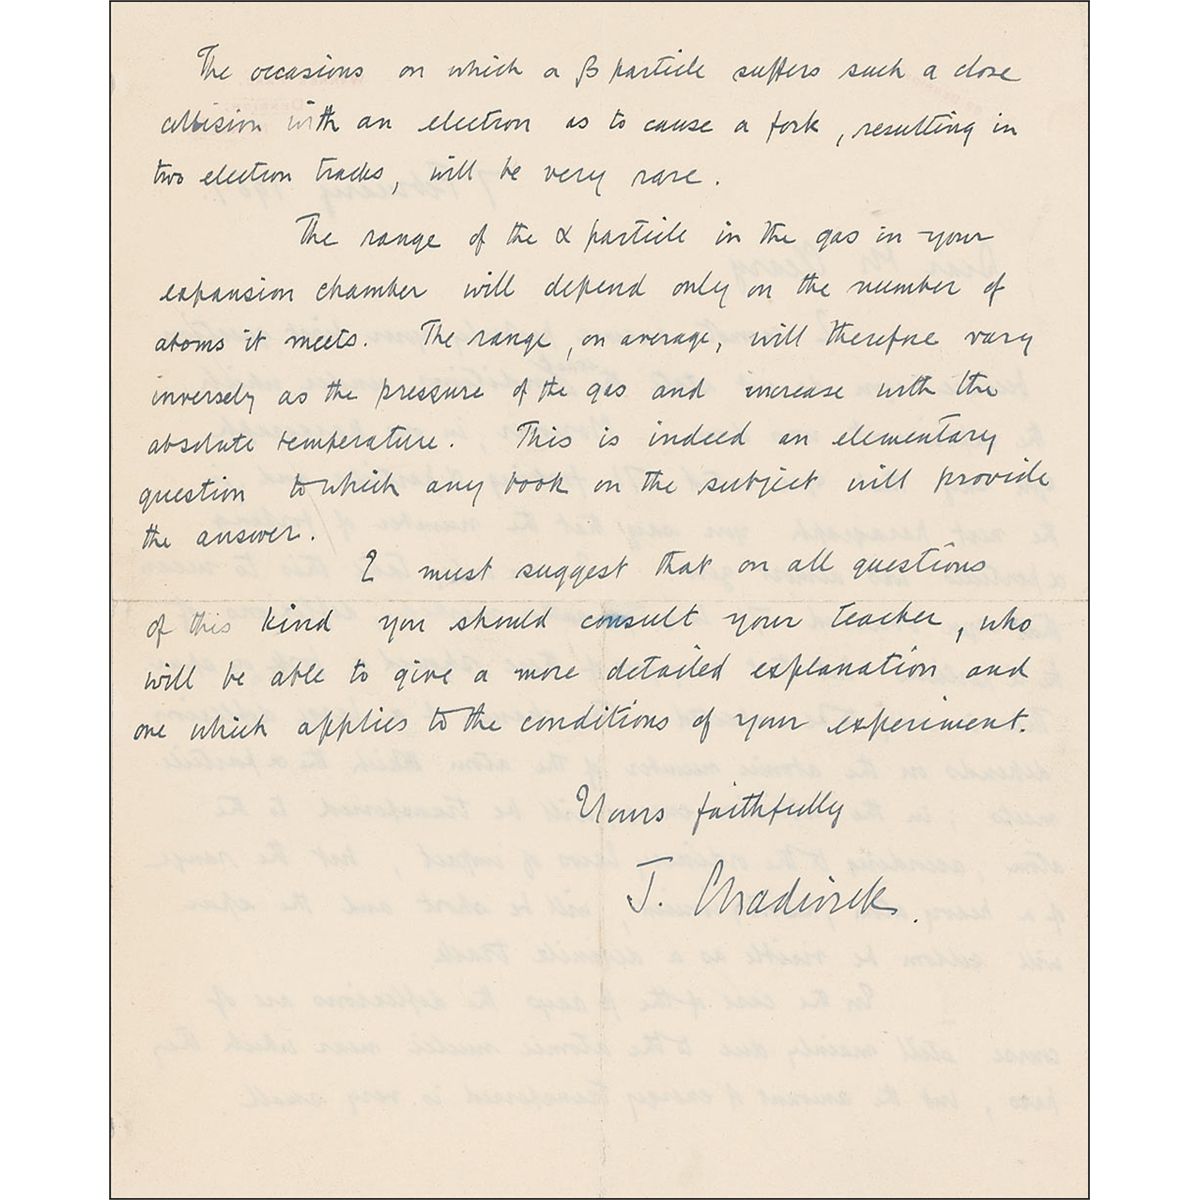 The occasions on which a β particle suffers such a close
collision with an electron as to cause a fork, resulting in
two electron tracks, will be very rare.
The range of the α particle in the gas in your
expansion chamber will depend only on the number of
atoms it meets. The range, on average, will therefore vary
inversely as the pressure of the gas and increase with the
absolute temperature. This is indeed an elementary
question to which any book on the subject will provide
the answer.
I must suggest that on all questions
of this kind you should consult your teacher, who
will be able to give a more detailed explanation and
one which applies to the conditions of your experiment.
Yours faithfully
J. Chadwick.